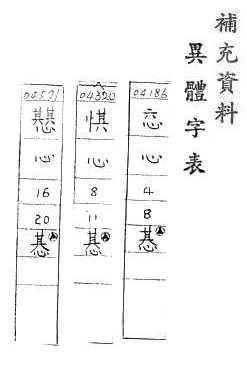 補充資料
異體字表
04186
恋
心
4
8
惎
04320
惧
心
8
11
惎
04571
心
16
20
惎